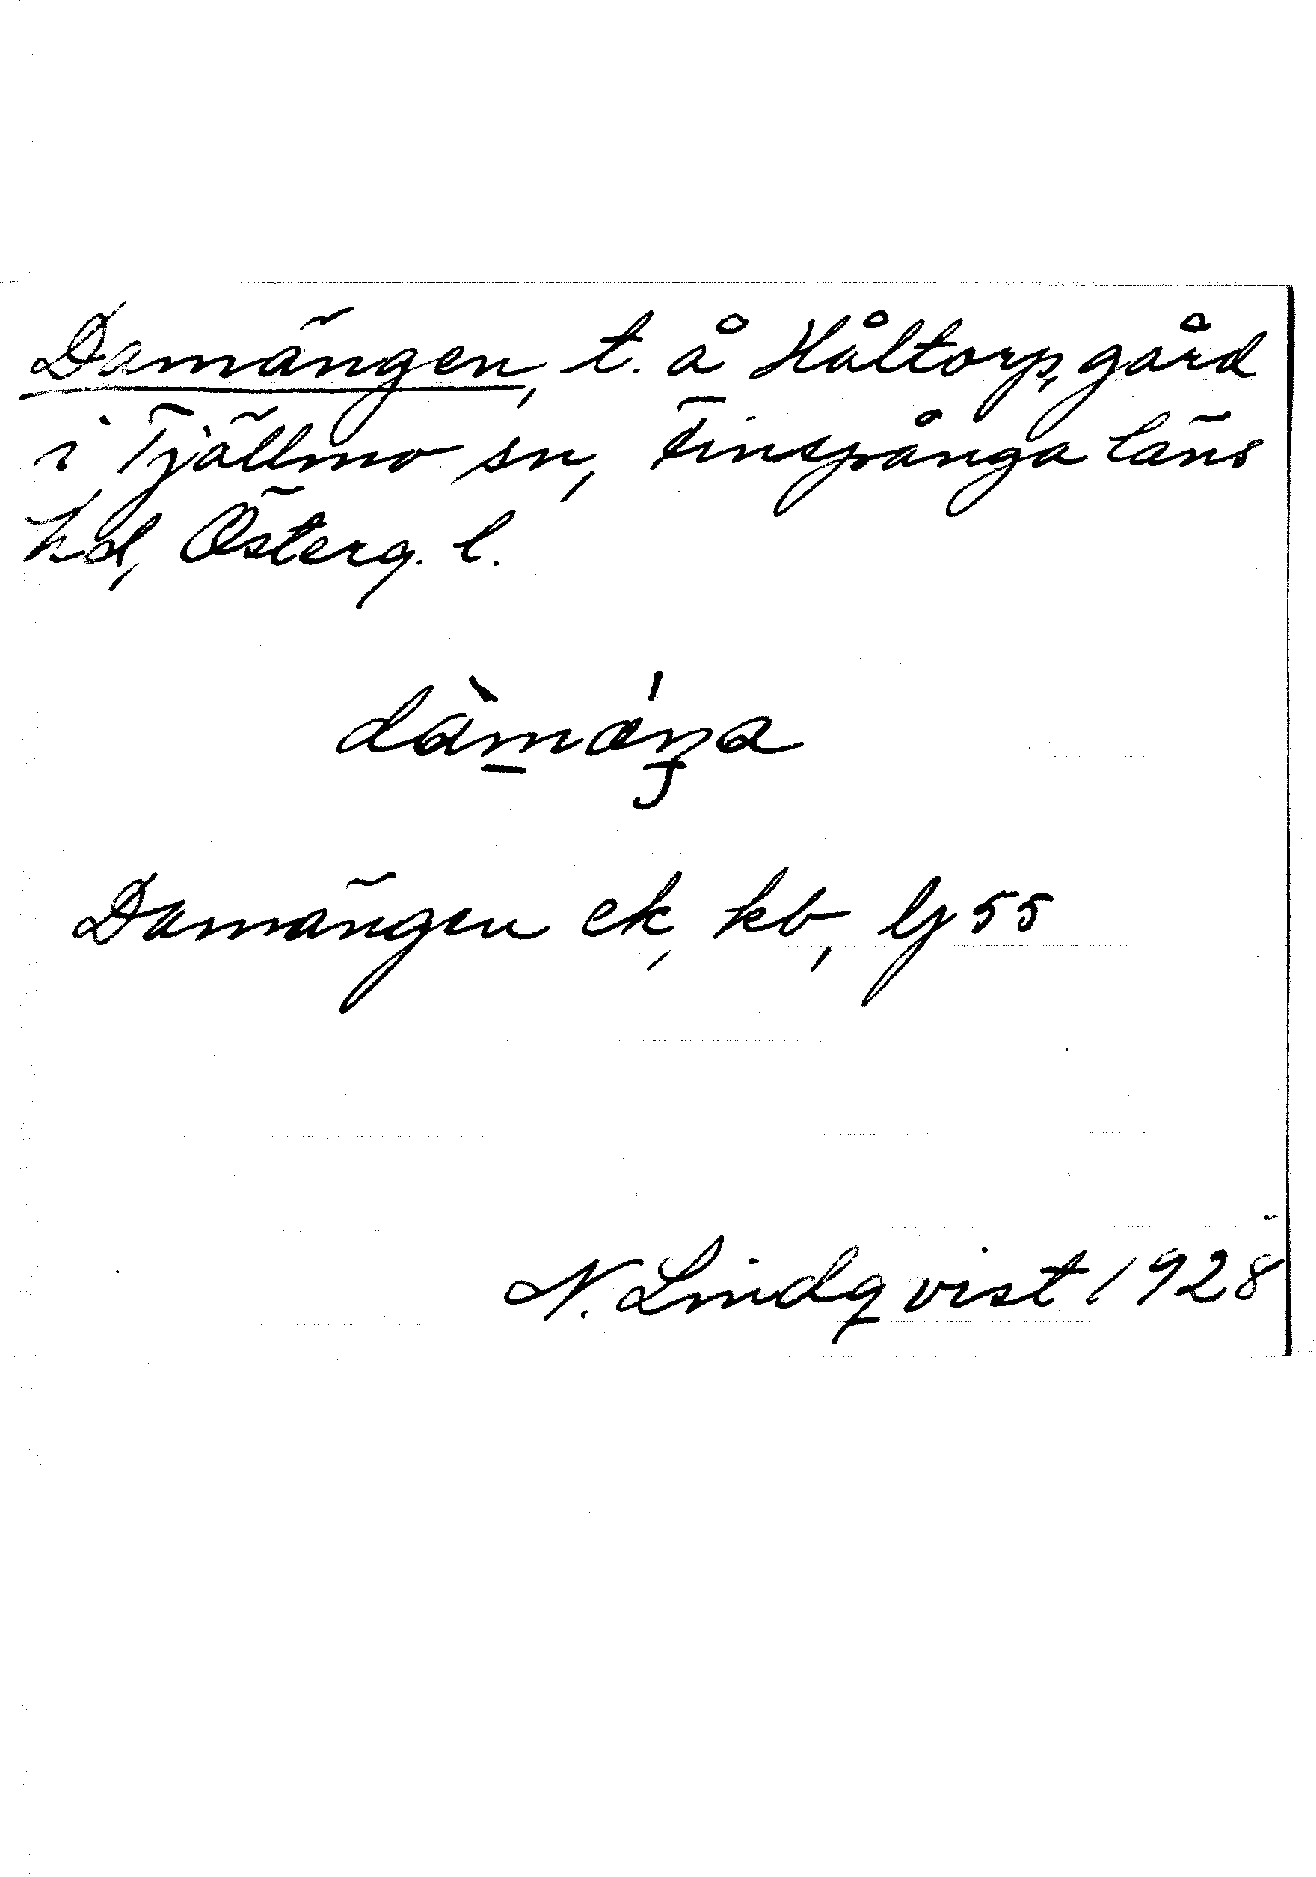 Damängen, t. å Håltorp, gård
i Tjällmo sn, Finspånga läns
hd, Österg. l.
dàmǽŋa
Damängen ek, kb, lj 55
N. Lindqvist 1928